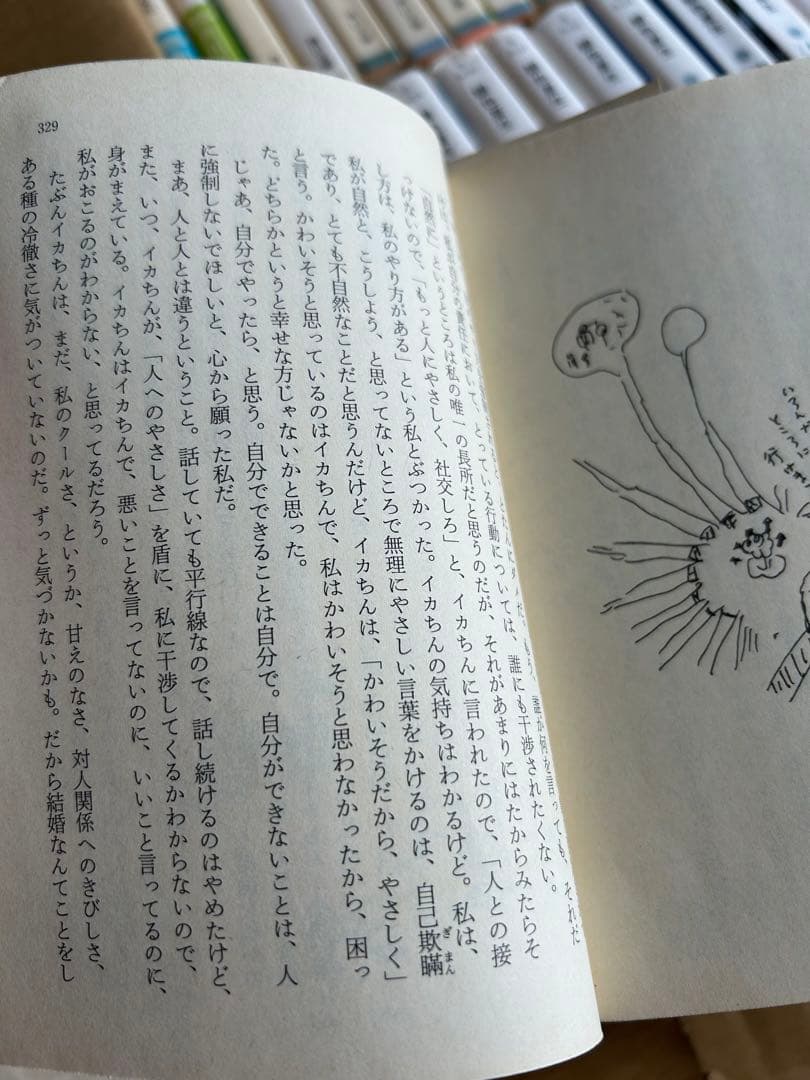 329
誰が何を言っても、それだ
とっている行動については、誰にも干渉されたくない。
「自然に」というところは私の唯一の長所だと思うのだが、それがあまりにはたからみたらそ
っけないので、「もっと人にやさしく、社交しろ」と、イカちんに言われたので、「人との接
し方は、私のやり方がある」という私とぶつかった。イカちんの気持ちはわかるけど。私は、
私が自然と、こうしよう、と思ってないところで無理にやさしい言葉をかけるのは、自己欺瞞
ぎまん
であり、とても不自然なことだと思うんだけど、イカちんは、「かわいそうだから、やさしく」
と言う。かわいそうと思っているのはイカちんで、私はかわいそうと思わなかったから、困っ
た。どちらかというと幸せな方じゃないかと思った。
じゃあ、自分でやったら、と思う。自分でできることは自分で。自分ができないことは、人
に強制しないでほしいと、心から願った私だ。
まあ、人と人とは違うということ。話していても平行線なので、話し続けるのはやめたけど、
また、いつ、イカちんが、「人へのやさしさ」を盾に、私に干渉してくるかわからないので、
身がまえている。イカちんはイカちんで、悪いことを言ってないのに、いいこと言ってるのに、
私がおこるのがわからない、と思ってるだろう。
たぶんイカちんは、まだ、私のクールさ、というか、甘えのなさ、対人関係へのきびしさ、
ある種の冷徹さに気がついていないのだ。ずっと気づかないかも。だから結婚なんてことをし
ところに